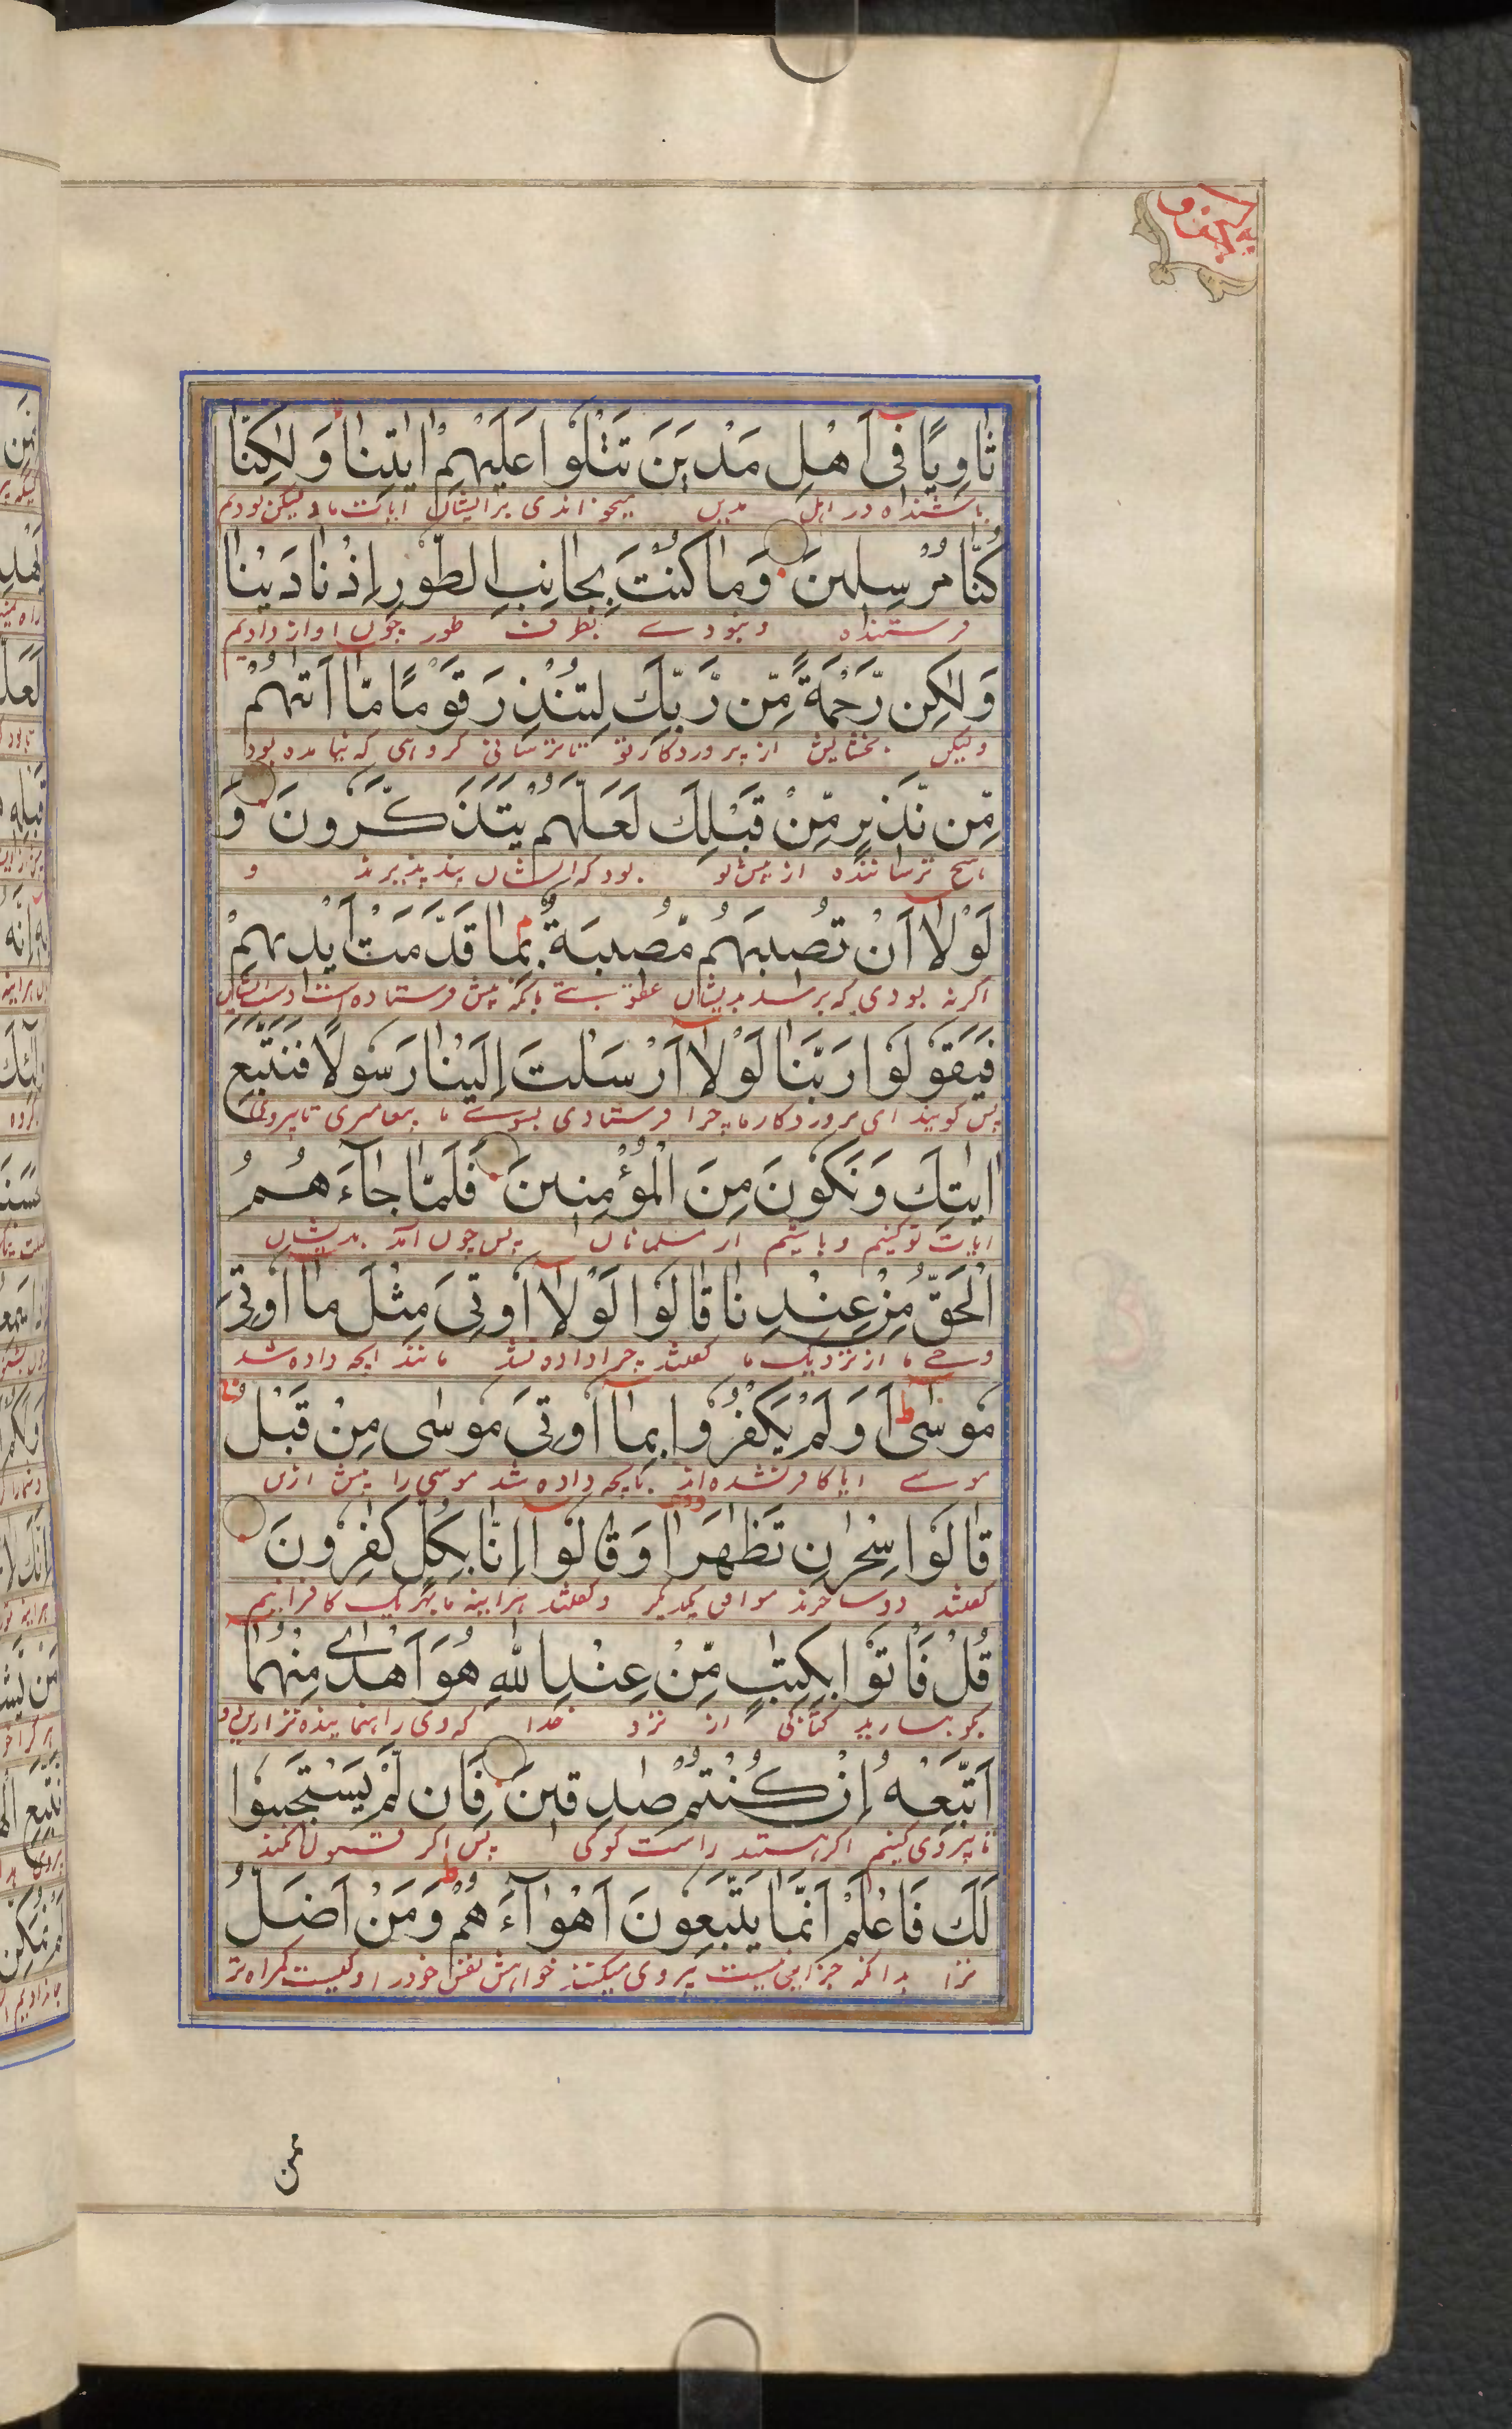 ثَاوِيًا فِىٓ اَهْلِ مَدْيَنَ تَتْلُوْا عَلَيْهِمْ اٰيٰتِنَا وَلٰكِنَّا
باشنده در اهل مدین میخواندی برایشان ایات ما و لیکن بودیم
كُنَّا مُرْسِلِينَ وَمَا كُنْتَ بِجَانِبِ الطُّوْرِ اِذْ نَادَيْنَا
فرستنده و نبودے بطرف طور چون اواز دادیم
وَلٰكِن رَّحْمَةً مِّن رَّبِّكَ لِتُنْذِرَ قَوْمًا مَّا اَتٰهُمْ
ولیکن بخشایش از پروردکار تو تا ترسانی کروهی که نیامده بود
مِّن نَّذِيرٍ مِّنْ قَبْلِكَ لَعَلَّهُمْ يَتَذَكَّرُونَ وَ
هیچ ترساننده از پیش تو بود که ایشان پند پذیرند و
لَوْلَآ اَنْ تُصِيبَهُم مُّصِيبَةٌ بِمَا قَدَّمَتْ اَيْدِيهِمْ
اکر نه بودی که برسد بدیشان عقوبتے بانکه پیش فرستاده است دست ایشان
فَيَقُوْلُوْا رَبَّنَا لَوْلَآ اَرْسَلْتَ اِلَيْنَا رَسُوْلًا فَنَتَّبِعَ
پس کویند ای پروردکار ما چرا فرستادی بسوے ما پیغامبری تا پیروی
اٰيٰتِكَ وَنَكُوْنَ مِنَ الْمُؤْمِنِينَ فَلَمَّا جَآءَهُمُ
ایات تو کنیم و باشیم از مسلمانان پس چون امد بدیشان
الْحَقُّ مِنْ عِنْدِنَا قَالُوْا لَوْلَآ اُوْتِىَ مِثْلَ مَا اُوْتِىَ
ما از نزدیک ما کفتند چرا داده نشد مانند انچه داده شد
مُوْسٰى اَوَلَمْ يَكْفُرُوْا بِمَا اُوْتِىَ مُوْسٰى مِنْ قَبْلُ
موسے ایا کافر نشده اند بانچه داده شد موسی را پیش ازین
قَالُوْا سِحْرٰنِ تَظٰهَرَا وَقَالُوْا اِنَّا بِكُلٍّ كٰفِرُوْنَ
کفتند دو ساحرند موافق یکدیکر و کفتند هراینه ما بهر یک کافرانیم
قُلْ فَاْتُوْا بِكِتٰبٍ مِّنْ عِنْدِ اللّٰهِ هُوَ اَهْدٰى مِنْهُمَا
بکو بیارید کتابی از نزد خدا که وی راه نماینده تر ازین دو
اَتَّبِعْهُ اِنْ كُنْتُمْ صٰدِقِينَ فَاِن لَّمْ يَسْتَجِيبُوا
تا پیروی کنیم اکر هستید راست کوی پس اکر قبول نکنند
لَكَ فَاعْلَمْ اَنَّمَا يَتَّبِعُوْنَ اَهْوَآءَهُمْ وَمَنْ اَضَلُّ
ترا بدانکه جز این نیست پیروی میکنند خواهش نفس خود را و کیست کمراه تر
ممن